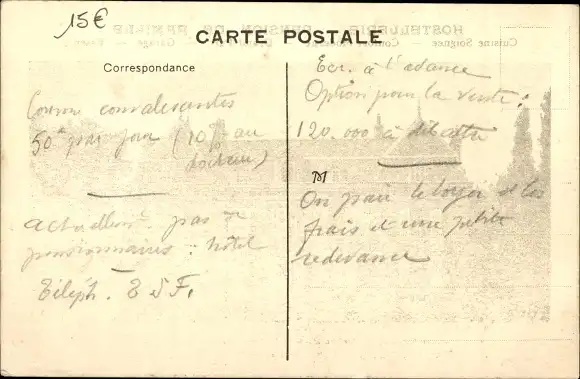 15€
HOSTELLERIE PENSION DE FAMILLE
Cuisine Soignée — Garage
CARTE POSTALE
Correspondance
Comme convalescentes
50 par jour (10% au
docteur)
actuellem. pas de
pensionnaires : hôtel
Téléph. T S F.
Ecr. à l'avance
Option pour la vente :
120.000 à débattre
On paie le loyer et les
frais et une petite
redevance